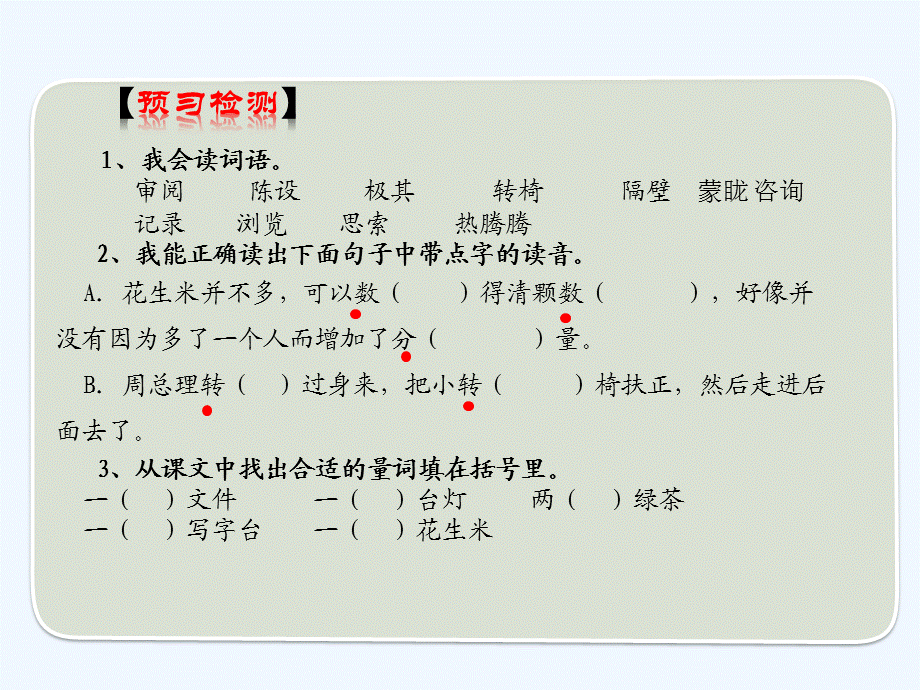 【预习检测】
1、我会读词语。
审阅 陈设 极其 转椅 隔壁 蒙眬 咨询
记录 浏览 思索 热腾腾
2、我能正确读出下面句子中带点字的读音。
A. 花生米并不多，可以数（ ）得清颗数（ ），好像并
没有因为多了一个人而增加了分（ ）量。
B. 周总理转（ ）过身来，把小转（ ）椅扶正，然后走进后
面去了。
3、从课文中找出合适的量词填在括号里。
一（ ）文件 一（ ）台灯 两（ ）绿茶
一（ ）写字台 一（ ）花生米